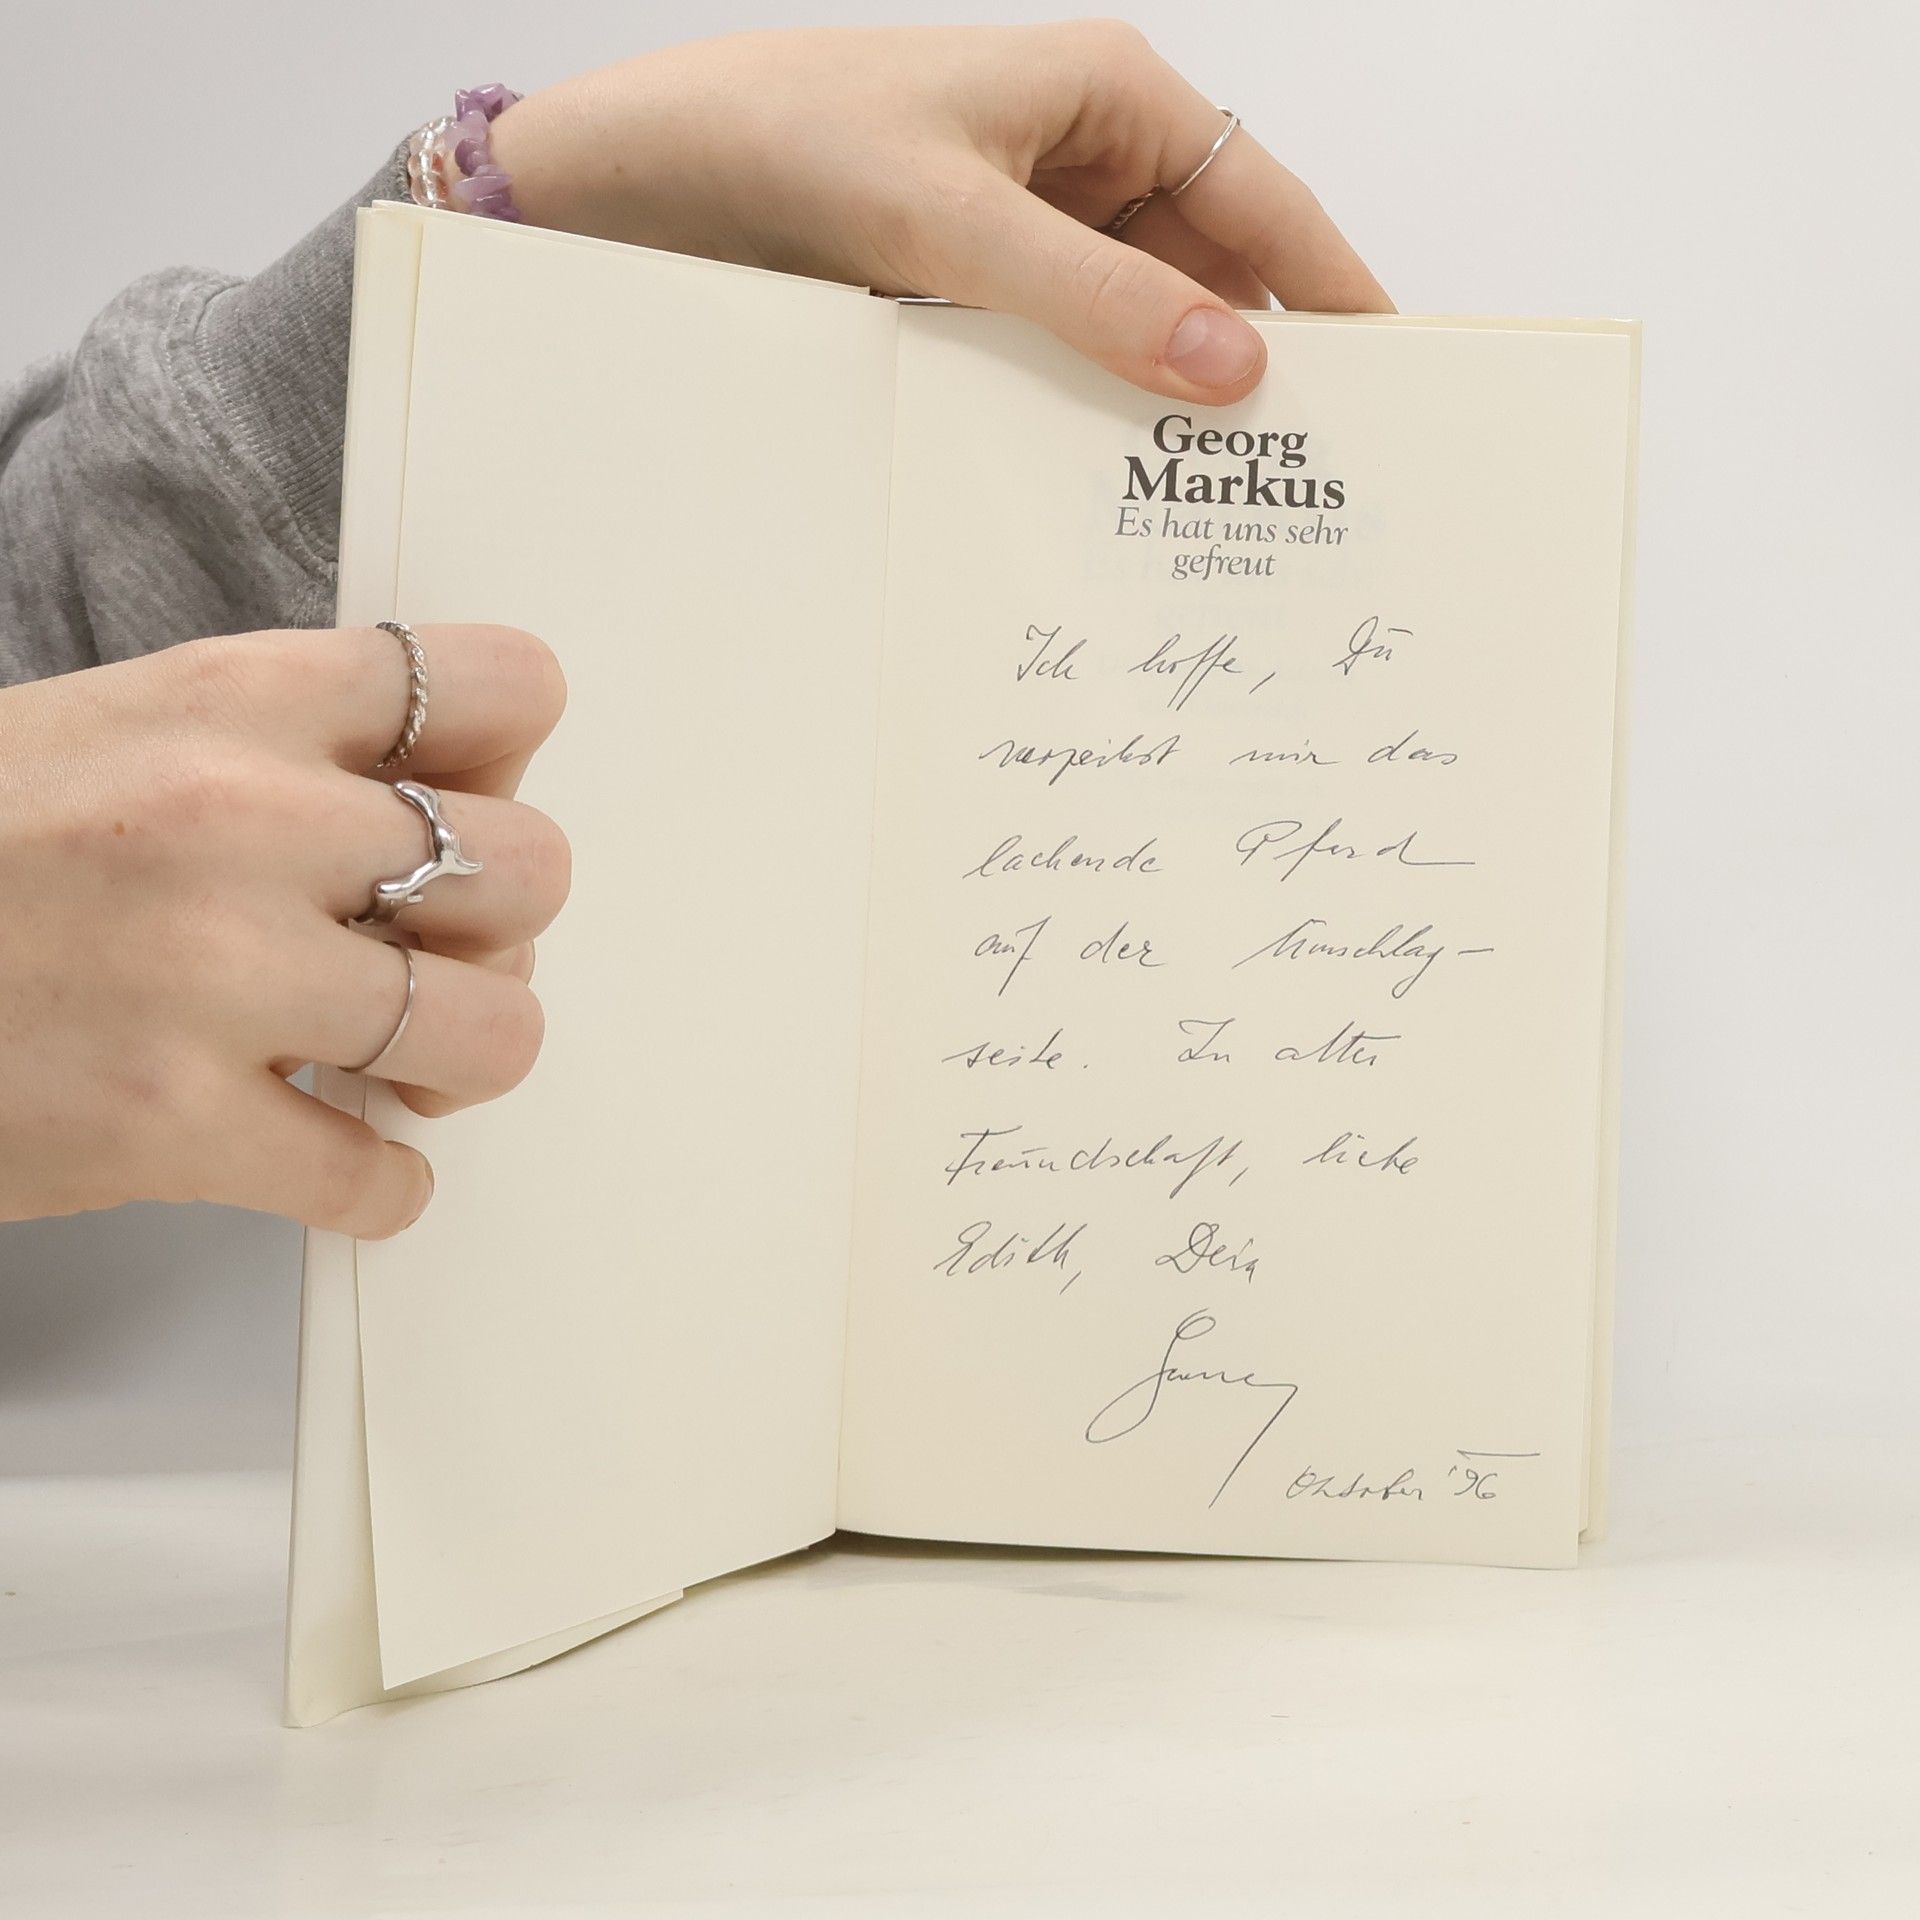 Georg
Markus
Es hat uns sehr
gefreut
Ich hoffe, Du
verzeihst mir das
lachende Pferd
auf der Umschlag-
seite. In alter
Freundschaft, liebe
Edith, Dein
Oktober '96